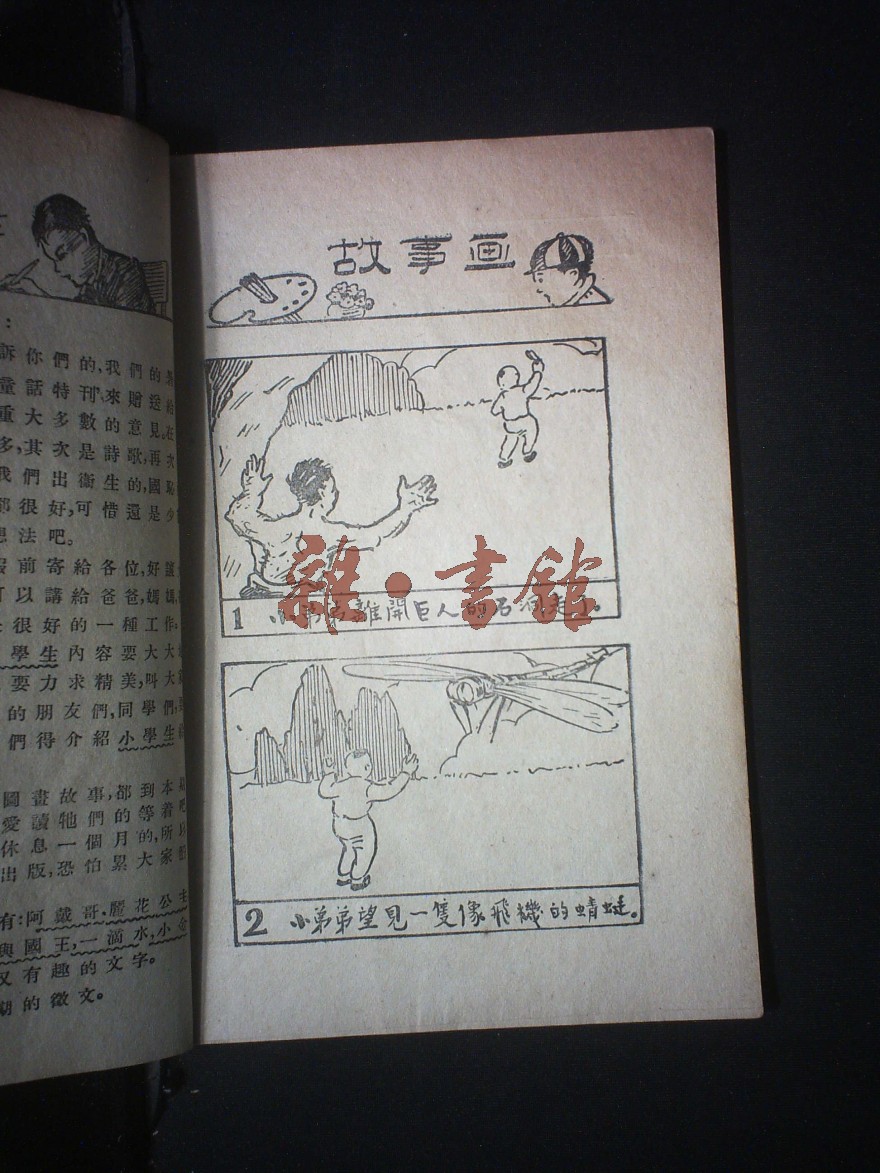 ：
訴你們的，我們的
童話特刊，來贈送給
重大多數的意見。在
多，其次是詩歌，再次
我們出衛生的，國恥
都很好，可惜還是少
想法吧。
假前寄給各位，好讓
可以講給爸爸，媽媽，
很好的一種工作，
學生內容要大大
要力求精美，叫大
的朋友們，同學們，
們得介紹小學生
圖畫故事，都到本
愛讀牠們的等着吧
休息一個月的，所以
出版，恐怕累大家
有：阿戴哥，麗花公主
與國王，一滴水，小
又有趣的文字。
期的徵文。
故事画
1 小弟弟離開巨人的石洞走了。
2 小弟弟望見一隻像飛機的蜻蜓。
雜·書館